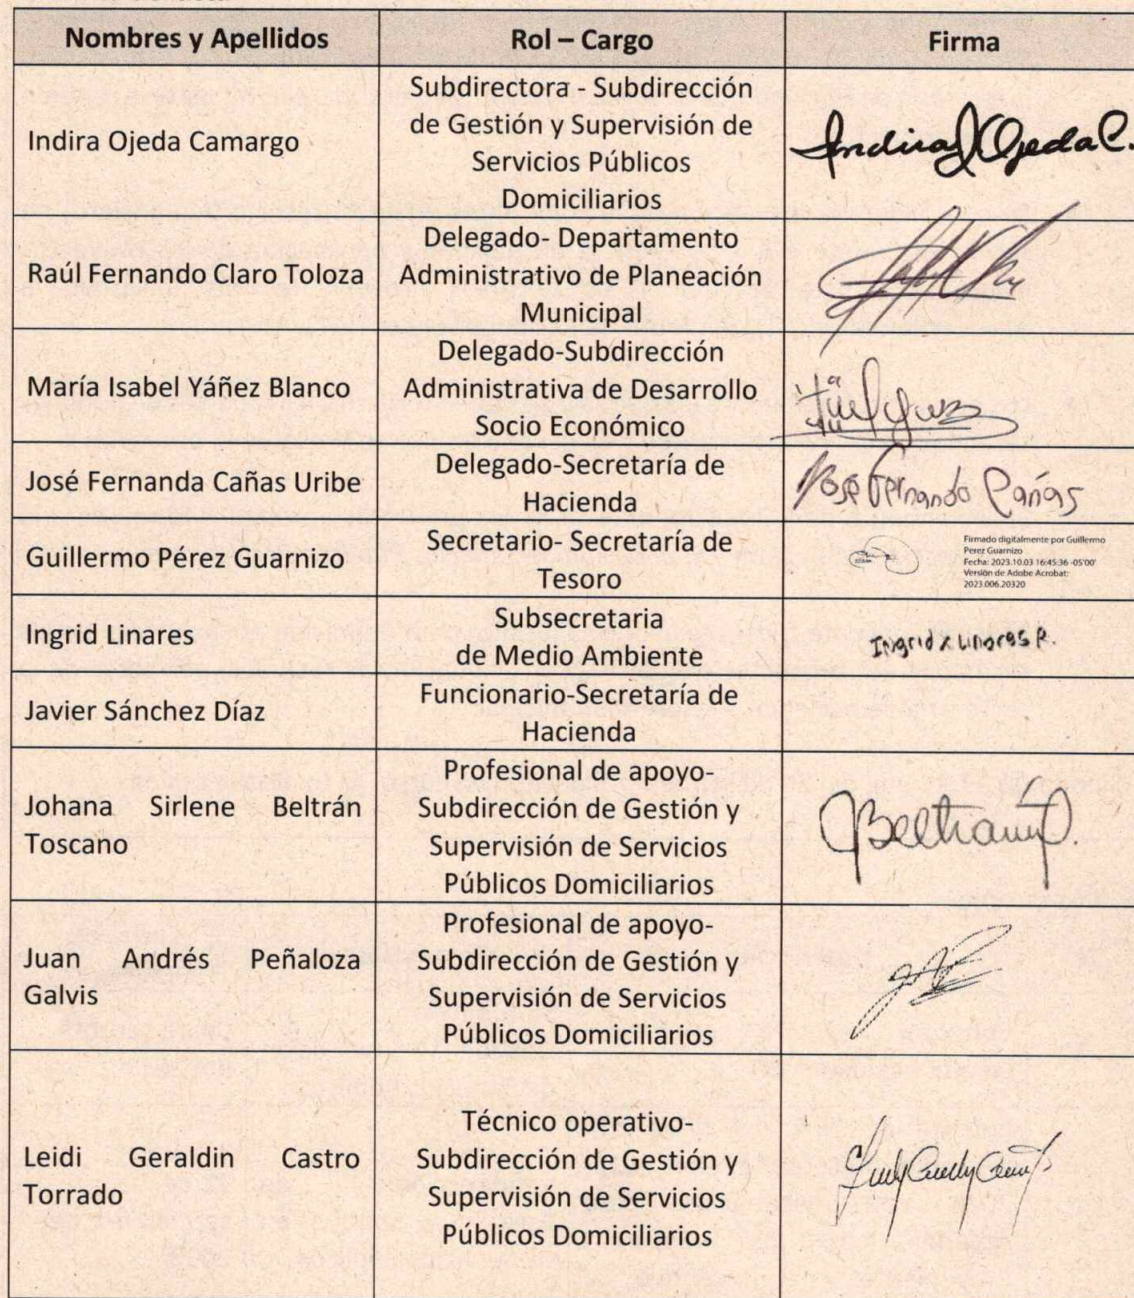 Nombres y Apellidos
Rol – Cargo
Firma
Indira Ojeda Camargo
Subdirectora - Subdirección
de Gestión y Supervisión de
Servicios Públicos
Domiciliarios
Indira Ojeda C.
Raúl Fernando Claro Toloza
Delegado- Departamento
Administrativo de Planeación
Municipal
María Isabel Yáñez Blanco
Delegado-Subdirección
Administrativa de Desarrollo
Socio Económico
José Fernanda Cañas Uribe
Delegado-Secretaría de
Hacienda
José Fernando Cañas
Guillermo Pérez Guarnizo
Secretario- Secretaría de
Tesoro
Firmado digitalmente por Guillermo
Perez Guarnizo
Fecha: 2023.10.03 16:45:36 -05'00'
Versión de Adobe Acrobat:
2023.006.20320
Ingrid Linares
Subsecretaria
de Medio Ambiente
Ingrid X Linares P.
Javier Sánchez Díaz
Funcionario-Secretaría de
Hacienda
Johana Sirlene Beltrán
Toscano
Profesional de apoyo-
Subdirección de Gestión y
Supervisión de Servicios
Públicos Domiciliarios
Juan Andrés Peñaloza
Galvis
Profesional de apoyo-
Subdirección de Gestión y
Supervisión de Servicios
Públicos Domiciliarios
Leidi Geraldin Castro
Torrado
Técnico operativo-
Subdirección de Gestión y
Supervisión de Servicios
Públicos Domiciliarios